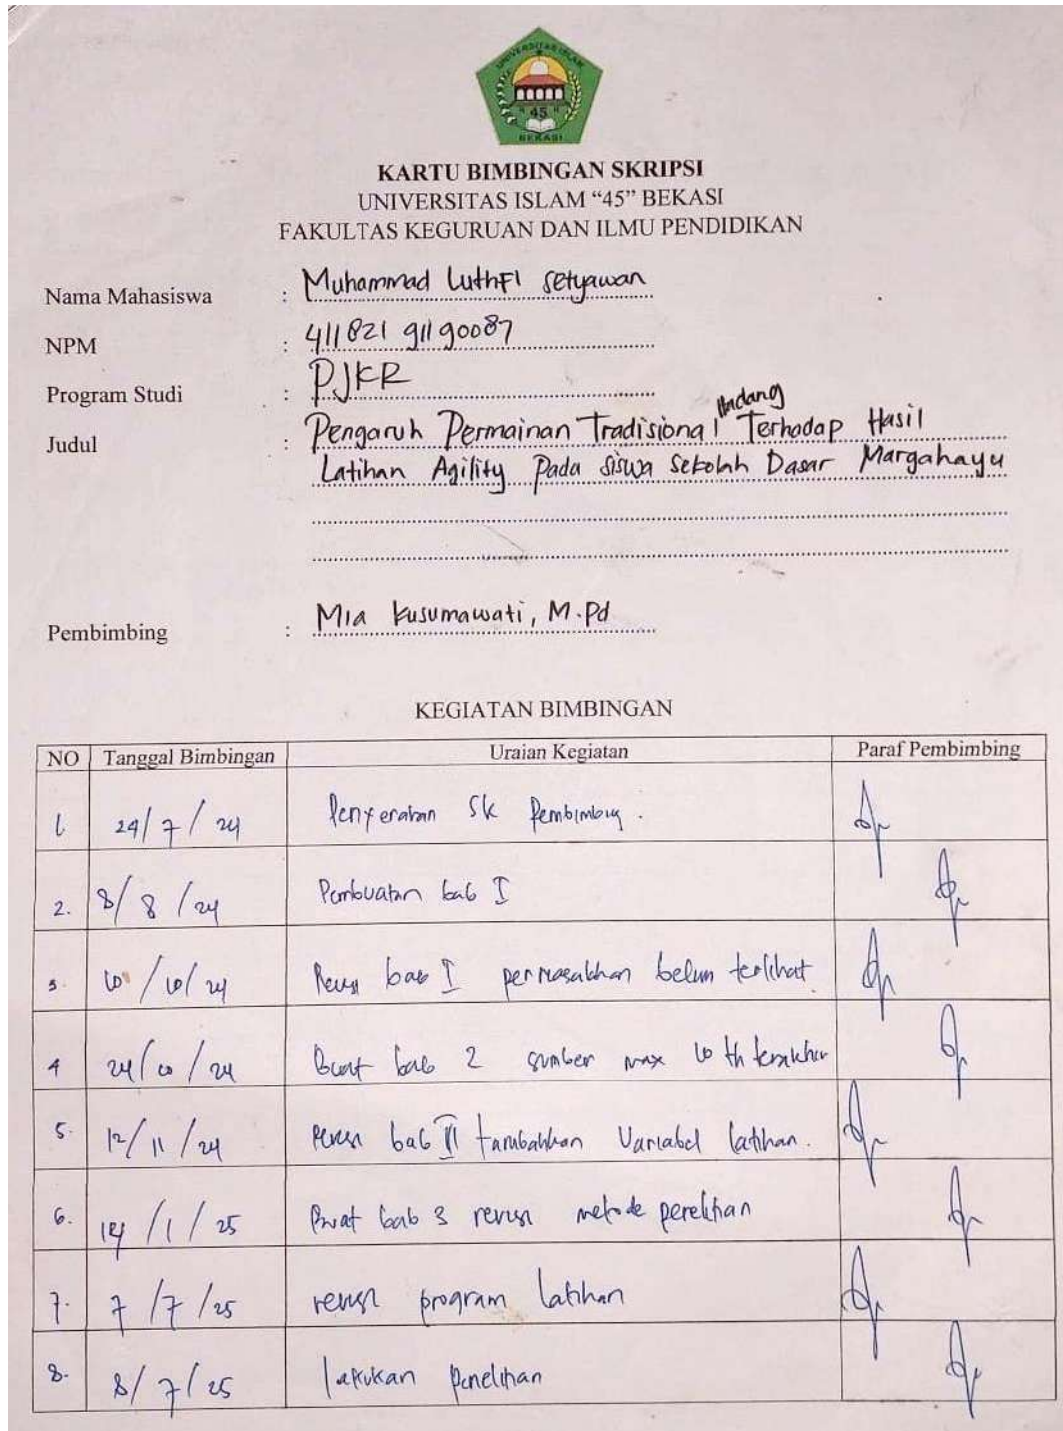 UNIVERSITAS ISLAM
"45"
BEKASI
KARTU BIMBINGAN SKRIPSI
UNIVERSITAS ISLAM “45” BEKASI
FAKULTAS KEGURUAN DAN ILMU PENDIDIKAN
Nama Mahasiswa : Muhammad Luthfi Setyawan
NPM : 41182191190087
Program Studi : PJKR
Judul : Pengaruh Permainan Tradisional Hadang Terhadap Hasil
Latihan Agility Pada Siswa Sekolah Dasar Margahayu
Pembimbing : Mia Kusumawati, M.Pd
KEGIATAN BIMBINGAN
NO Tanggal Bimbingan Uraian Kegiatan Paraf Pembimbing
1. 29/7/24 Penyerahan SK Pembimbing.
2. 8/8/24 Pembuatan bab I
3. 10/10/24 Revisi bab I permasalahan belum terlihat.
4 24/10/24 Buat bab 2 sumber max 10 th terakhir
5. 12/11/24 revisi bab II tambahkan Variabel latihan.
6. 14/1/25 Buat bab 3 revisi metode penelitian
7. 7/7/25 revisi program latihan
8. 8/7/25 lakukan penelitian